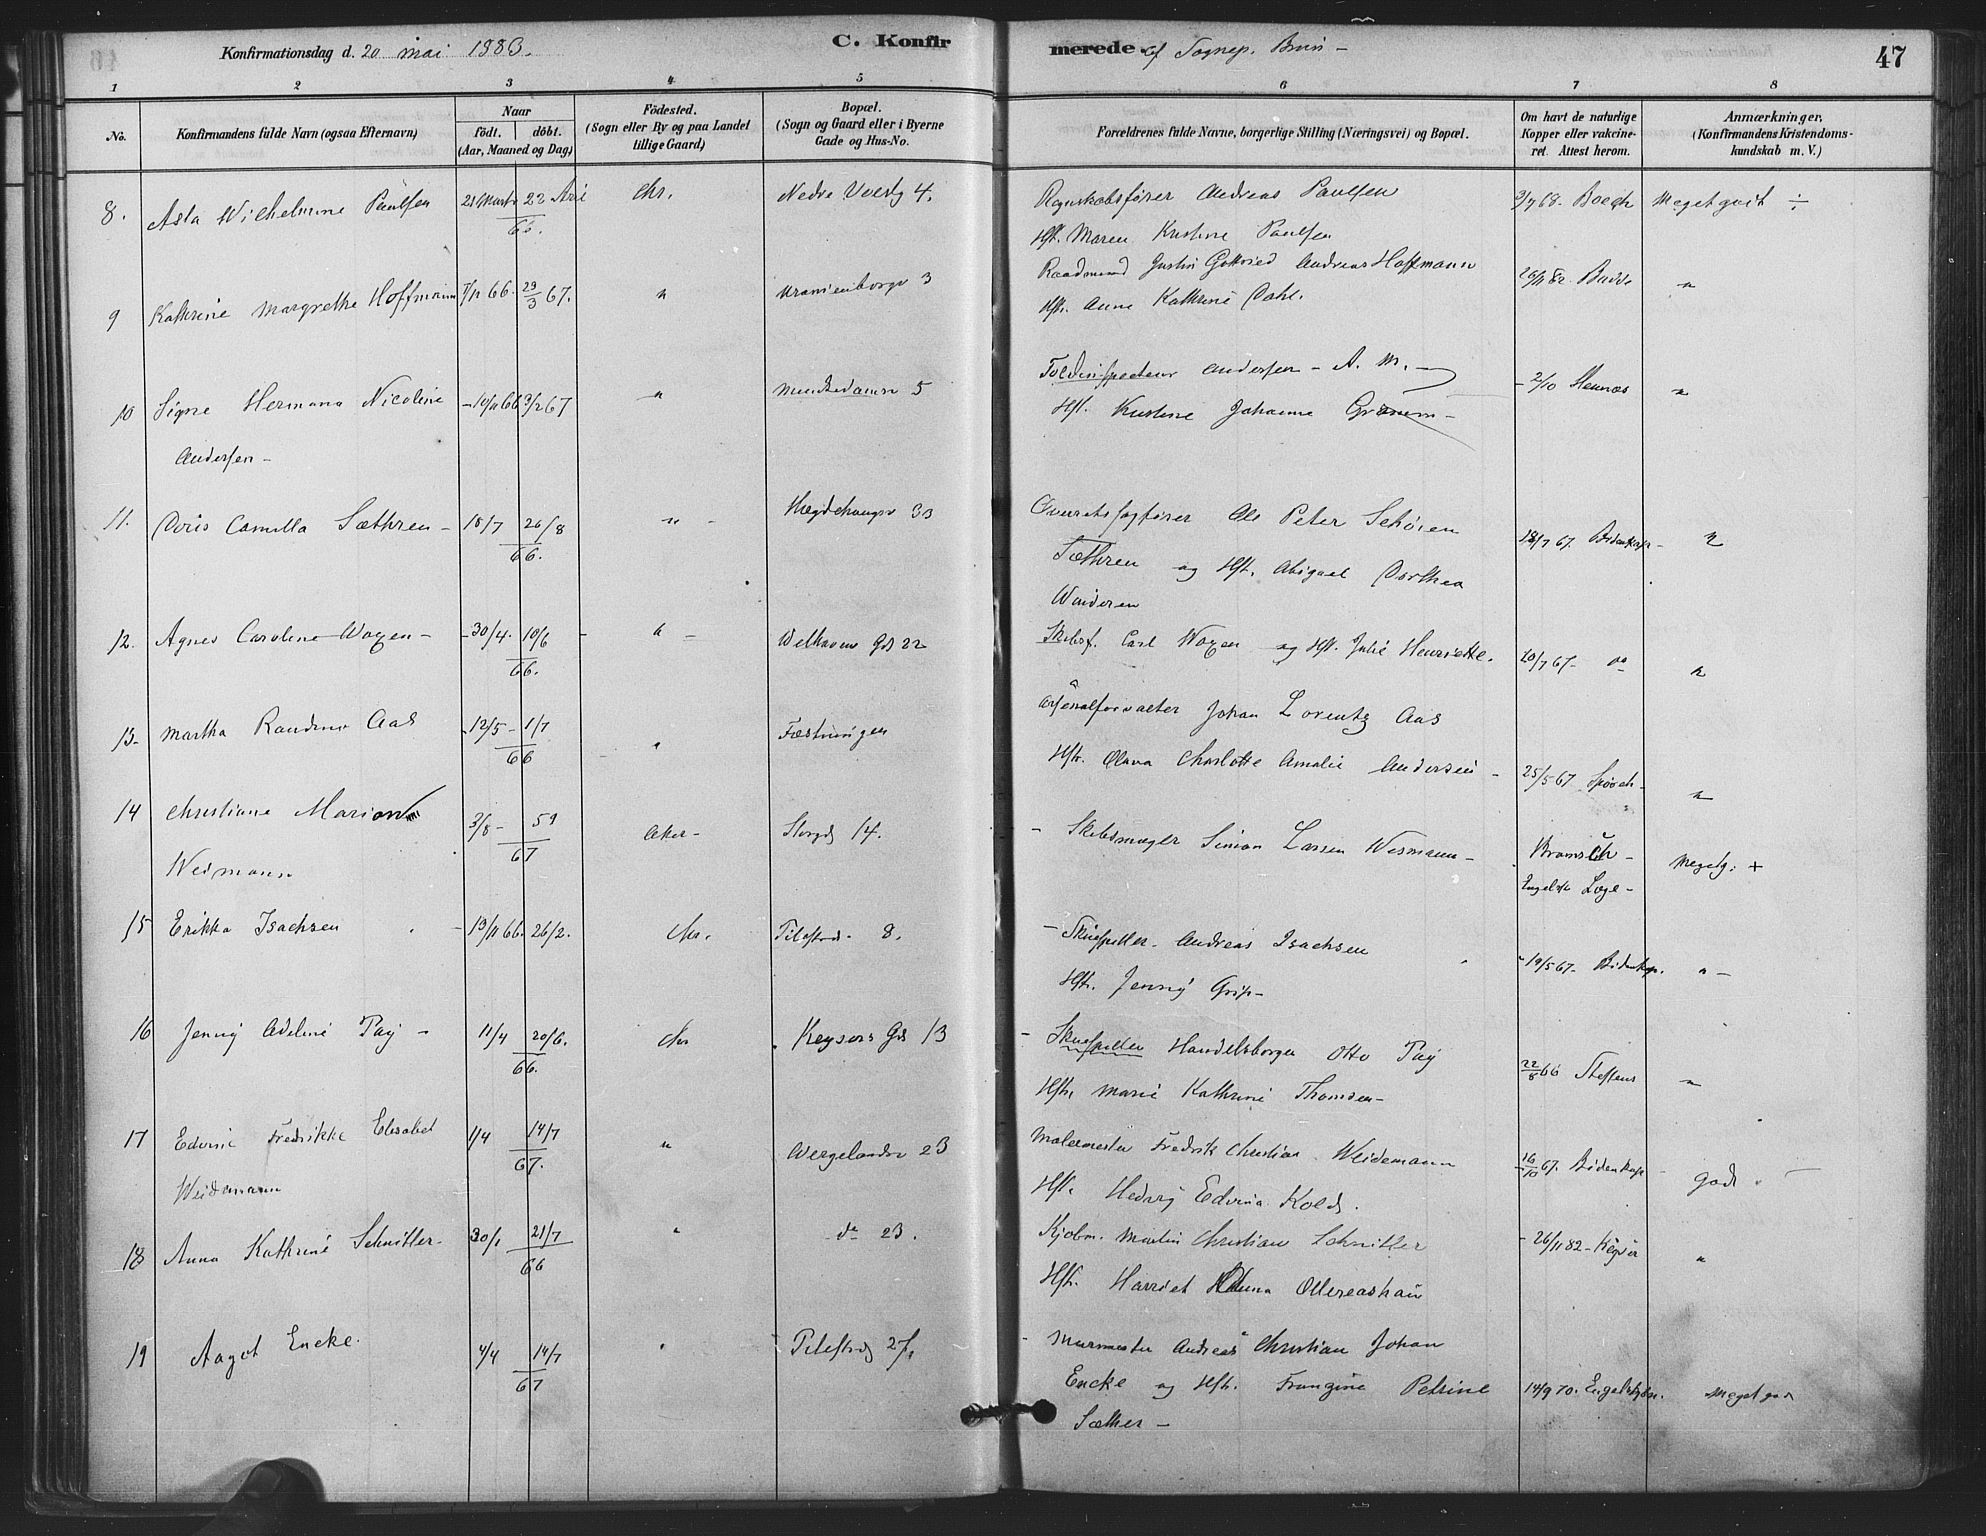 Konfirmationsdag d. 20 mai 1883.
C. Konfirmerede. af Sognep. Bruun –
47
1 2 3 4 5 6 7 8
No.
Konfirmandens fulde Navn (ogsaa Efternavn)
Naar
født. | døbt.
(Aar, Maaned og Dag)
Fødested.
(Sogn eller By og paa Landet
tillige Gaard)
Bopæl.
(Sogn og Gaard eller i Byerne
Gade og Hus-No.
Forældrenes fulde Navne, borgerlige Stilling (Næringsvei) og Bopæl.
Om havt de naturlige
Kopper eller vakcine-
ret. Attest herom.
Anmærkninger,
(Konfirmandens Kristendoms-
kundskab m. V.)
8. Asta Wilhelmine Paulsen 21 Marts 22 April 66. Chr. Nedre Voldg 4. Regnskabsfører Andreas Paulsen 3/7 68. Boeck Meget godt ÷
Hst. Maren Kristine Paulsen
9 Kathrine Margrethe Hoffmann 7/11 66. 29/3 67. " Uranienborgv 3 Raadmand Justin Gottfried Andreas Hoffmann 26/11 82. "
Hst. Anna Kathrine Dahl.
10 Signe Hermana Nicoline – 10/11 66 3/2 67 " Munkedamsv 5 Toldinspecteur Andersen – A. M. – 2/10 "
Andersen – Hst. Kristine Johanne
11. Doris Camilla Sæthren – 18/7 26/8 66. " – Hægdehaugsv 33 Overretssagfører Ole Peter Schøien 18/7 67. Bidenkap – "
Sæthren og Hst. Abigael Dorthea
12. Agnes Caroline Woxen – – 30/4. 10/6 66. " – Welhavens Gd 22 Skibsf. Carl Woxen og Hst. Julie Henriette. 20/7 67 – do "
13 – Martha Aas – 12/5 – 1/7 66 " Fæstningen Arsenalforvalter Johan Lorentz Aas
Hst. Olava Charlotte Amalie Andersen – 25/5 67 "
14 Christiane Marion 3/8 – 5 9 67 Aker – Storgd 14. – Skibsmægler Simon Larsen Wesmann – Megetg. +
Engelsk Læge –
15 Erikka Isachsen – 19/11 66. 26/2. Chr. Pilestræd. 8. – Skuespiller. Andreas Isachsen 19/5 67 – Bidenkap. " –
Hst. Jenny Grip –
16 Jenny Adeline Pay – 11/4 20/6. 66. Chr Keysers Gd 13 – Skuespiller Handelsborger Otto Pay 22/8 66 Steffens "
Hst. Marie Kathrine Thomsen –
17 Edvine Fredrikke Elisabet 1/4 14/7 67. " Wergelandsv 23 Malermester Fredrik Christian Weidemann 16/10 67. Bidenkap godt. –
Weidemann Hst. Hedvig Edvina Kold.
18 Anna Kathrine Schnitler – 30/1 21/7 66 " – do 23. Kjøbm. Martin Christian Schnitler – 26/11 82 – "
Hst. Harriet
19 Aagot Encke. 4/4 14/7 67 " Pilestræd 27. – Murmester Andreas Christian Johan
Encke og Hst. Petrine 14/9 70. Meget god
Sæther –